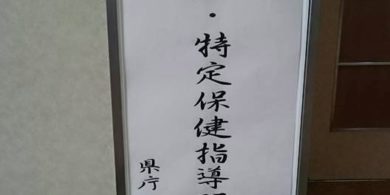 ・特定保健指導
県庁